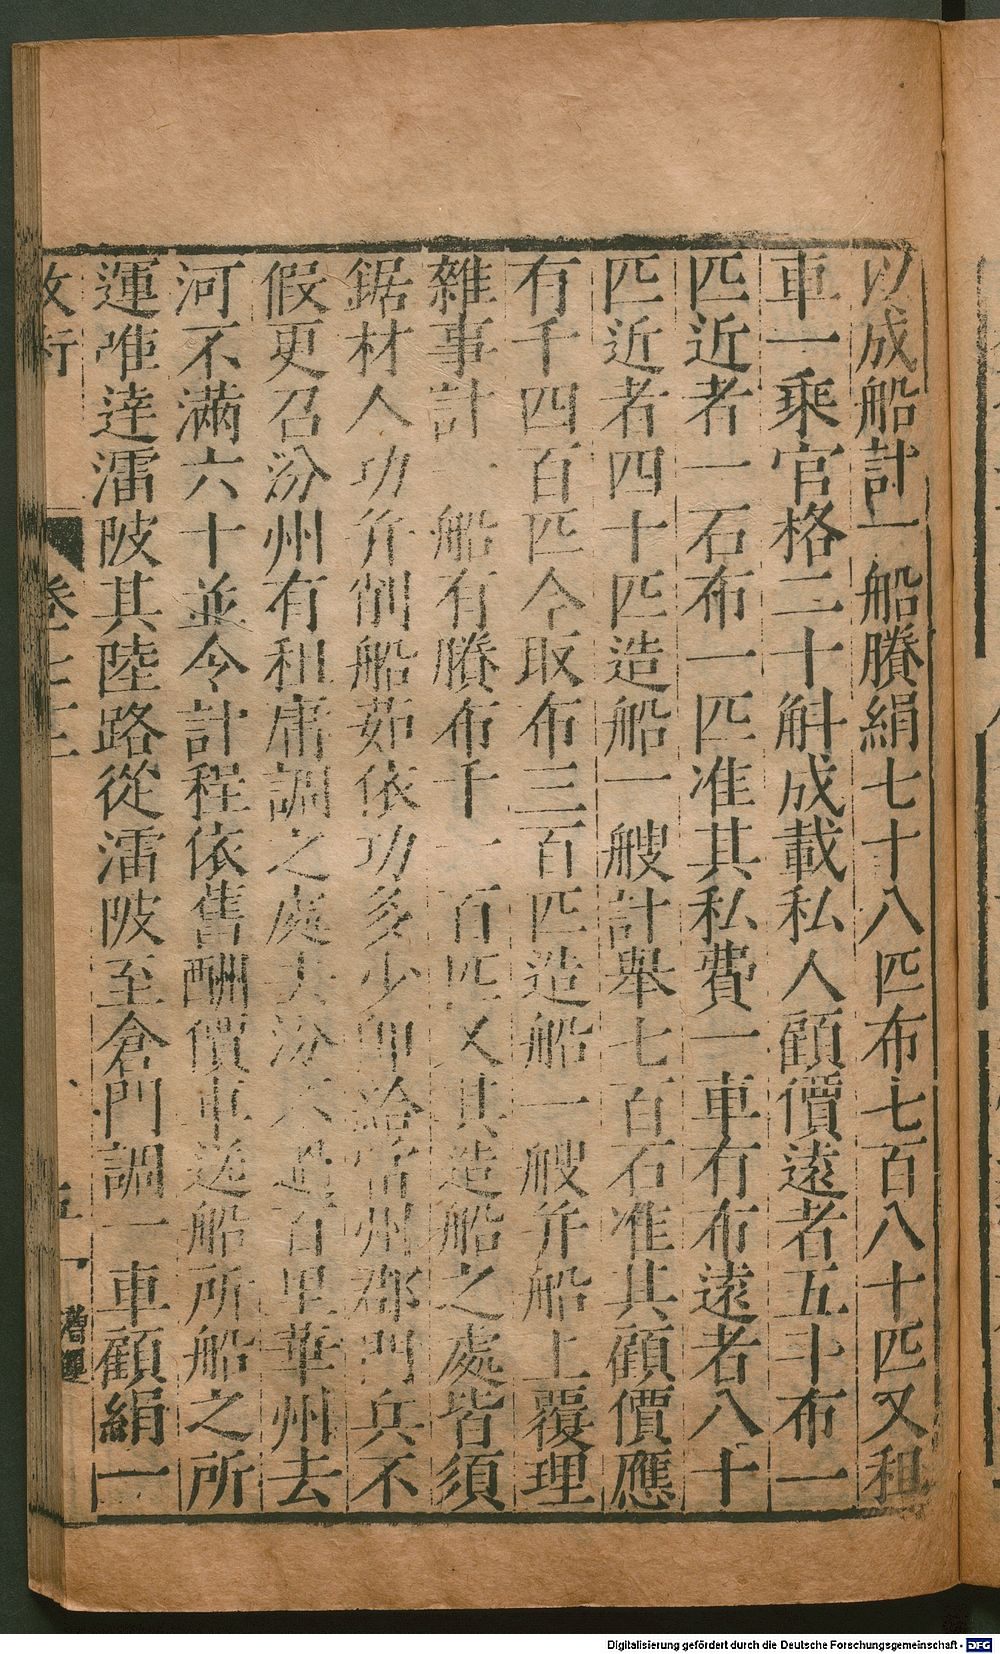 以成船計一船賸絹七十八匹布七百八十匹又租
車一乘官格二十斛成載私人顧價遠者五斗布一
匹近者一石布一匹准其私費一車有布遠者八十
匹近者四十匹造船一艘計舉七百石准其顧價應
有千四百匹今取布三百匹造船一艘并船上覆理
雜事計一船有賸布千一百匹又其造船之處皆須
鋸材人功并削船茹依功多少即給當州郡門兵不
假更召汾州有租庸調之處去汾不過百里華州去
河不滿六十並令計程依舊酬價車送船所船之所
運唯達潘陂其陸路從潘陂至倉門調一車顧絹一
卷七三
Digitalisierung gefördert durch die Deutsche Forschungsgemeinschaft - DFG